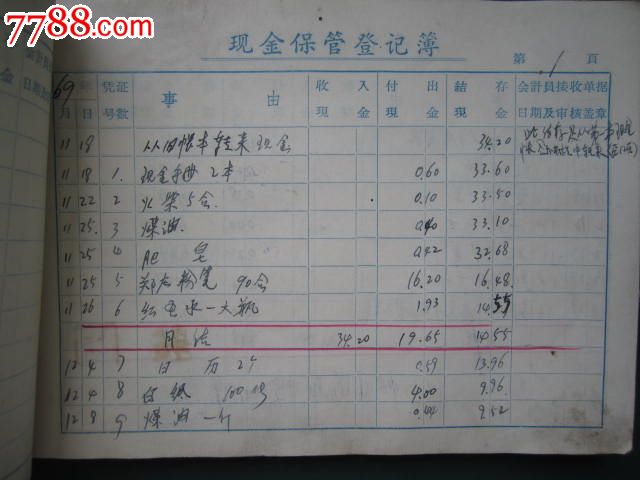 7788.com
中国收藏热线
现金保管登记簿
第 1 頁
69年 凭证号数 事由 收入现金 付出现金 結存现金 会計員接收单据日期及审核盖章
月 日
11 18 从旧帐本转来现金 34.20
11 18 1. 现金手册 2本 0.60 33.60
11 22 2 火柴5合 0.10 33.50
11 25. 3 煤油. 0.40 33.10
11 25 4 肥皂 0.42 32.68
11 25 5 粉笔 90合 16.20 16.48
11 26 6 红毛水一大瓶 1.93 14.55
月结 34.20 19.65 14.55
12 4 7 日历 2个 0.59 13.96
12 4 8 白纸 100张 4.00 9.96
12 8 9 煤油一斤 0.44 9.52